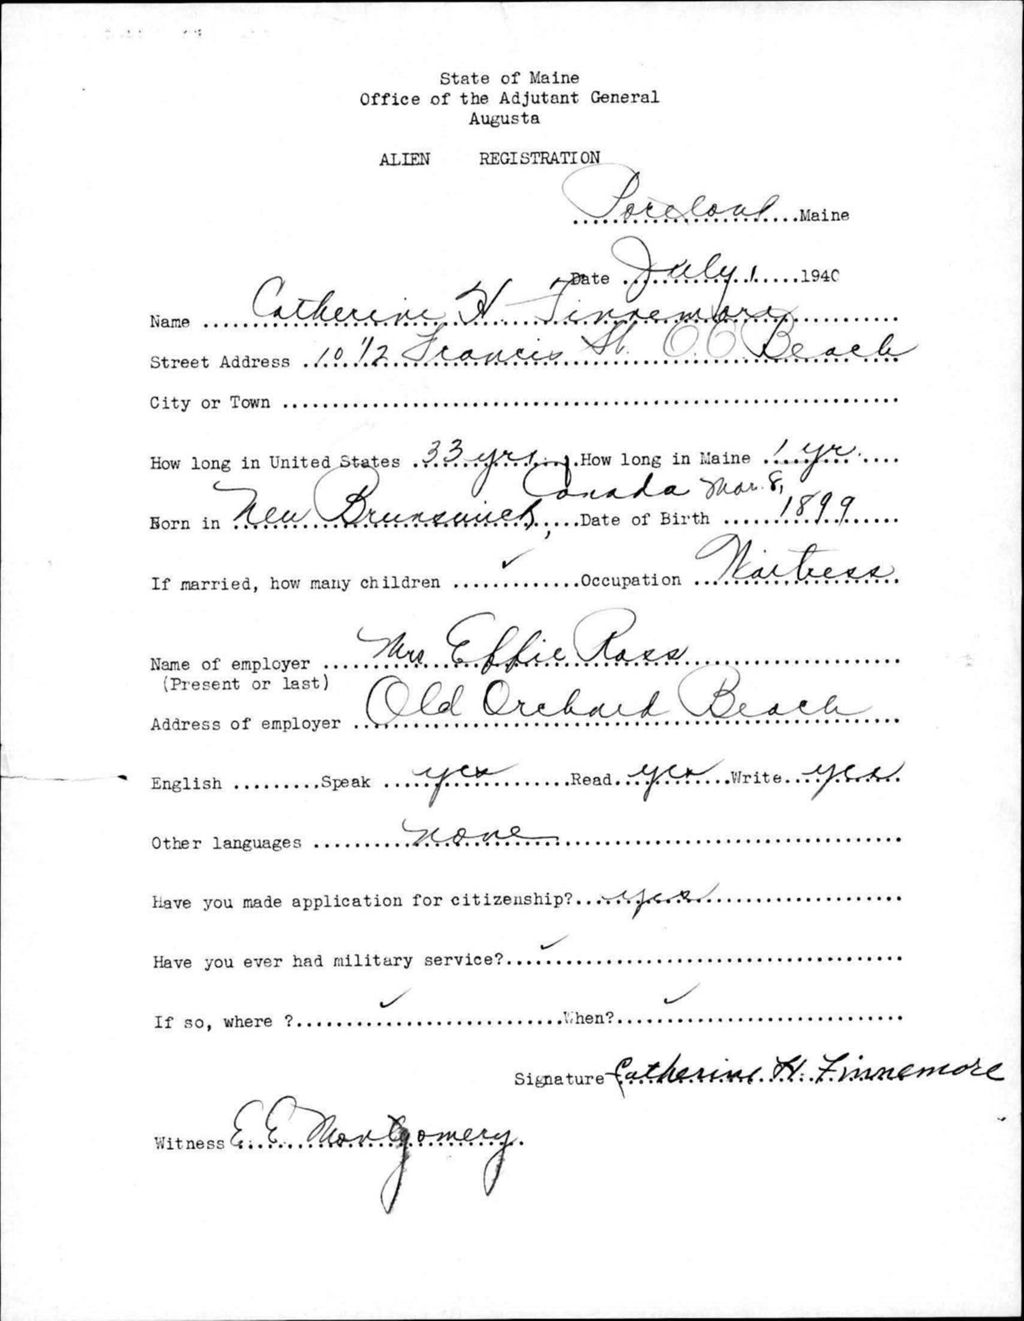 State of Maine
Office of the Adjutant General
Augusta
ALIEN REGISTRATION
Portland Maine
Date July 1 1940
Name Catherine H. Finnemore
Street Address 10 1/2 Francis St. O. O. Beach
City or Town
How long in United States 33 yrs. How long in Maine 1 yr.
Born in New Brunswick, Canada Date of Birth Mar. 8, 1899
If married, how many children ✓ Occupation Waitress
Name of employer Mrs Effie Ross
(Present or last)
Address of employer Old Orchard Beach
English Speak yes Read yes Write yes
Other languages none
Have you made application for citizenship? yes
Have you ever had military service? ✓
If so, where ? ✓ When? ✓
Signature Catherine H. Finnemore
Witness E. E. Montgomery.